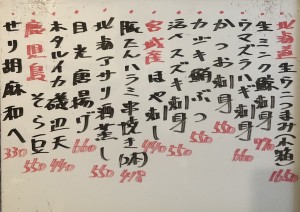 北海道 生ウニつまみ小箱 1650
生ミンク鯨刺身 970
ウマズラハギ刺身 660
かつお刺身 550
カジキ鮪ぶつ 550
活〆スズキ刺身 550
宮城産 ほや刺し 440
豚たんハラミ串焼き(2本) 418
北海アサリ酒蒸し 550
目光唐揚げ 660
ホタルイカ磯辺天 440
鹿児島 そら豆 550
せり胡麻和へ 330